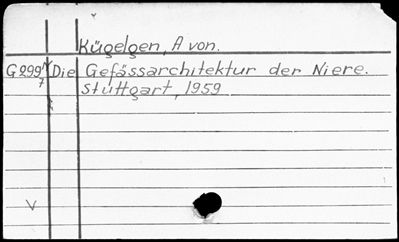 Kügelgen, A von.
G299 Die Gefässarchitektur der Niere.
7
Stuttgart, 1959
V